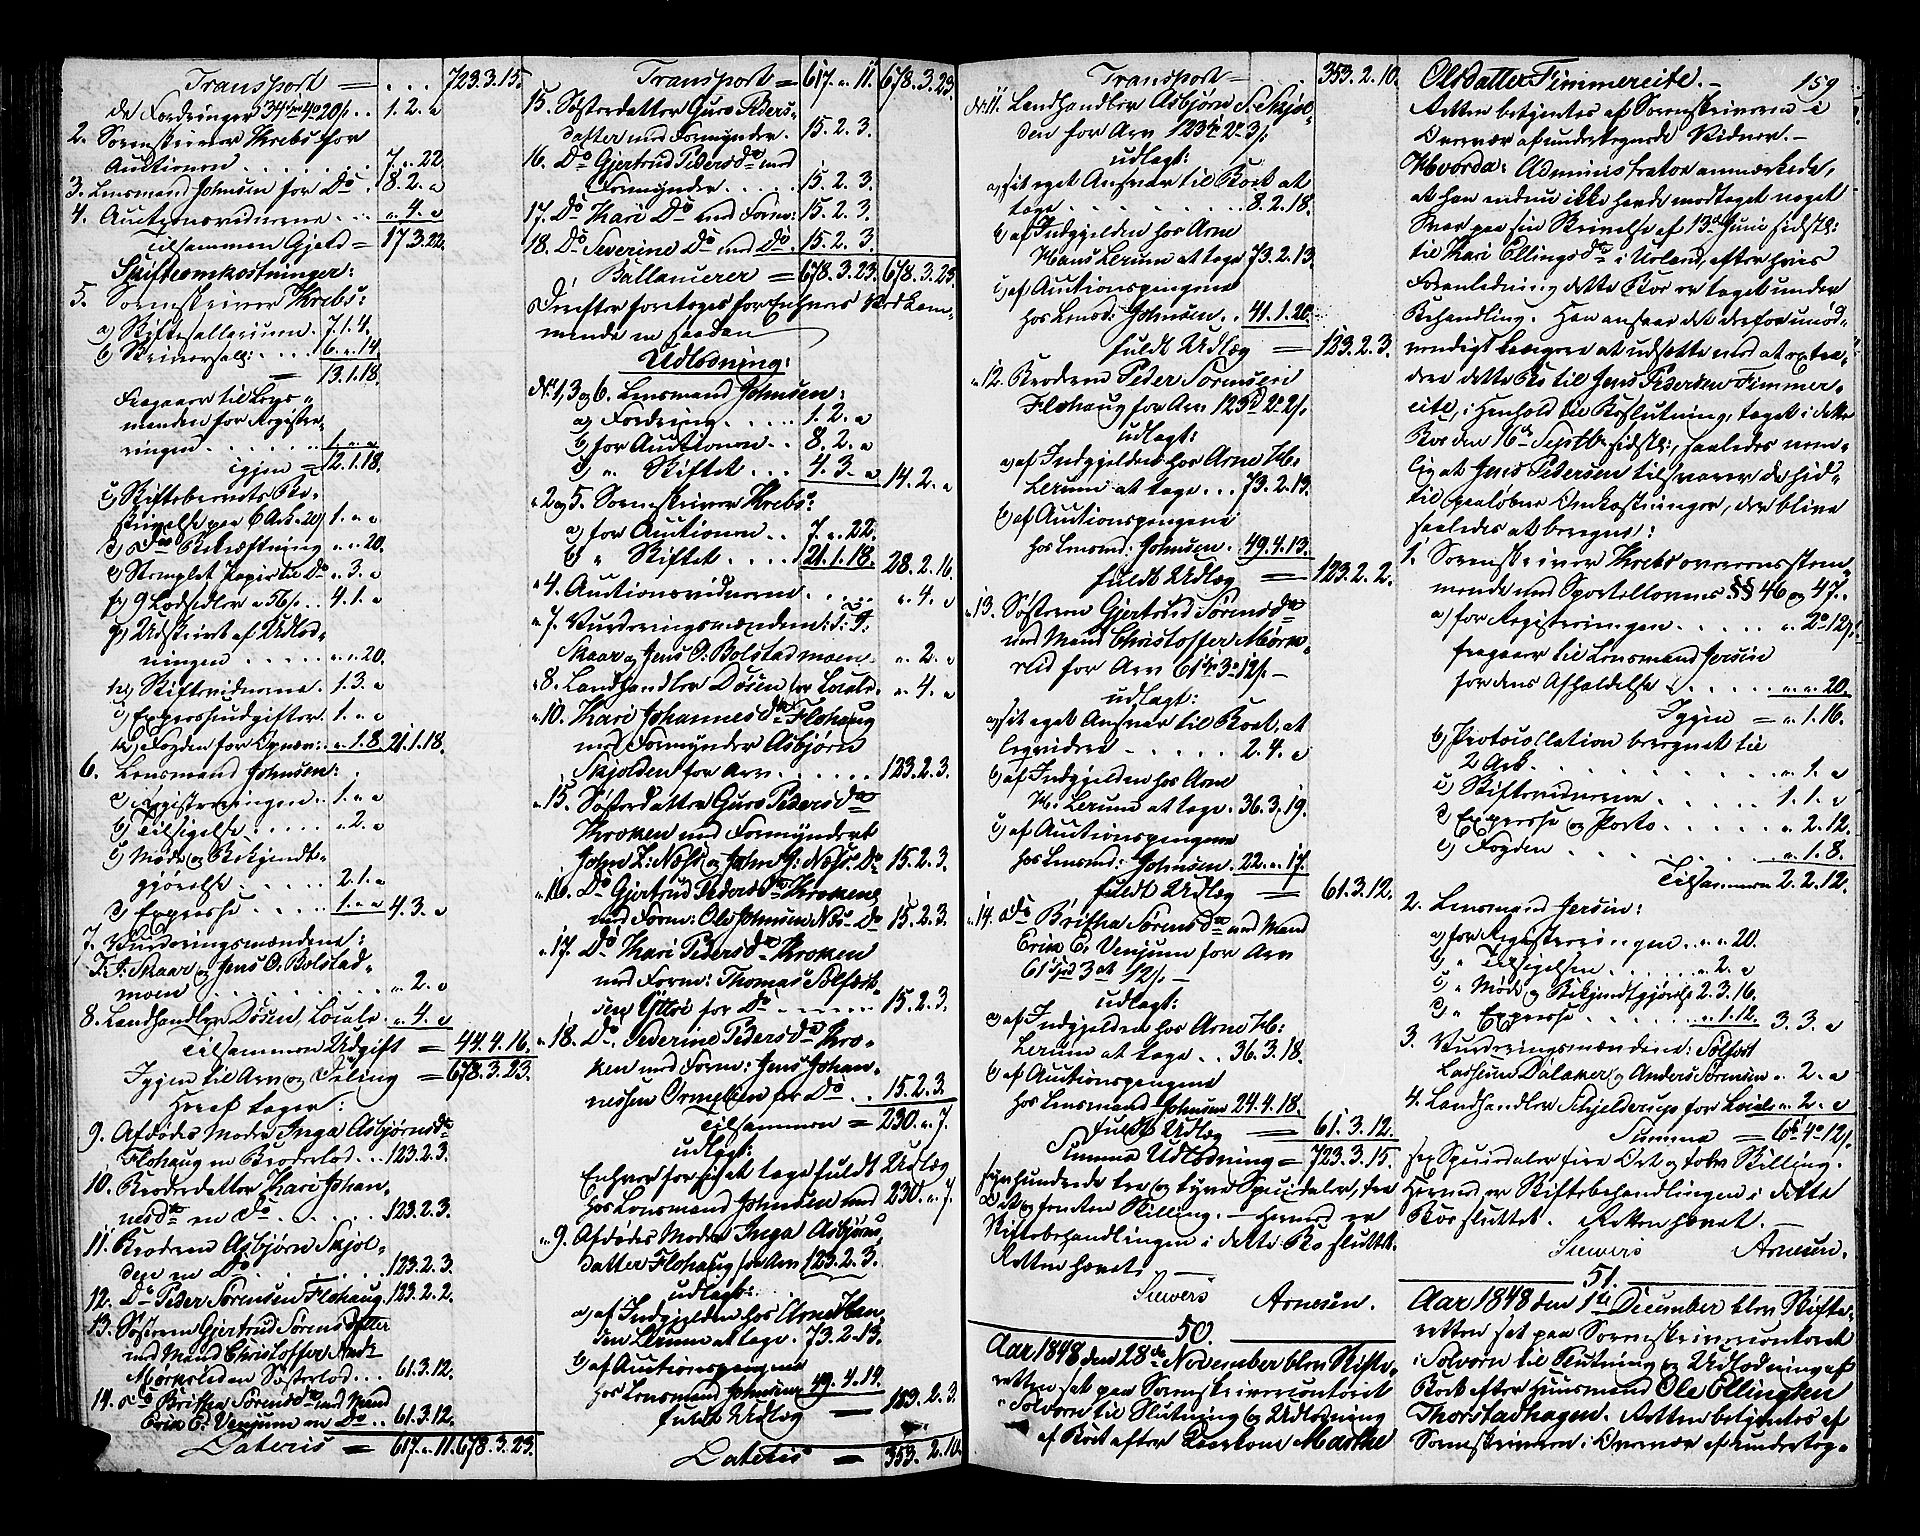 Transport = . . . 723.3.15.
de Fordringer 34 Sp 4 o 20 s . . 1.2.„
2. Sorenskriver Krebs for
Auctionen . . . . . 7.„.22.
3. Lensmand Johnsen for Do 8.2.„
4. Auctionsvidnerne . . . „.4.„
Tilsammen Gjeld = 17.3.22.
Skifteomkostninger:
5. Sorenskriver Krebs:
a) Skiftesallarium . 7.1.4.
b) Skriversall: . . . 6.„.14
= 13.1.18.
Fragaar til Lens-
manden for Registre-
ringen . . . . . 1.„.„
igjen = 12.1.18.
c) Skiftebrevets Be-
skrivelse paa 6 Ark a 20 s 1.„.„
d) Dets Bekræftning „.„.20.
e) Stemplet Papir til Do „.3.„
f) 9 Lodsedler a 56 s . . 4.1.„
g) Udskrivt af Udlod-
ningen . . . . . „.„.20.
h) Skiftevidnerne . 1.3.„
i) Expressudgifter . 1.„.„
k) Fogden for Opnæv: . „.1.8 21.1.18.
6. Lensmand Johnsen:
a) Registreringen . . 1.„.„
b) Tilsigelse . . . . . „.2.„
c) Møde og Bekjendt-
gjørelse . . . . . 2.1.„
d) Expresse . . . . 1.„.„ 4.3.„
7. Vurderingsmændene:
T. T. Skaar og Jens O. Bolstad-
moen . . . . . . . . „.2.„
8. Landhandler Døsen, Locale . „.4.„
Tilsammen Udgift = 44.4.16.
Igjen til Arv og Deling = 678.3.23.
Heraf tager:
9. Afdødes Moder Inga Asbjørnsdr
Flohaug en Broderlod . . . 123.2.3.
10. Broderdatter Kari Johan-
nesdtr en Do . . . . . 123.2.3.
11. Broderen Asbjørn Skjol-
den en Do . . . . . . . 123.2.3.
12. Do Peder Sørensen Flohaug . 123.2.2.
13. Søsteren Gjertrud Sørensdatter
med Mand Christoffer
Mørkeliden Søsterlod . . . 61.3.12.
14. do Britha Sørensdtr med Mand
Erik E. Venjum en Do . . 61.3.12.
Lateris = 617.„.11. 678.3.23.
Transport = 617.„.11 678.3.23.
15. Søsterdatter Guro Peders-
datter med Formynder . 15.2.3.
16. Do Gjertrud Pedersdr med
Formynder . . . . . 15.2.3.
17. Do Kari Do med Form: 15.2.3.
18. Do Severine Do med Do . 15.2.3.
Ballancerer = 678.3.23. 678.3.23.
Derefter foretoges for Enhvers Vedkom-
mende en saadan
Udlodning:
No 1, 3 og 6. Lensmand Johnsen:
a) Fordring . . . . 1.2.„
b) for Auctionen . . 8.2.„
c) „ Skiftet . . . 4.3.„ 14.2.„
„ 2 og 5. Sorenskriver Krebs:
a) for Auctionen . . 7.„.22.
b) „ Skiftet . . . . 21.1.18. 28.2.16.
„ 4. Auctionsvidnerne . . . . . „.4.„
„ 7. Vurderingsmændene: T. T:
Skaar og Jens O. Bolstadmoen . „.2.„
„ 8. Landhandler Døsen for Locale . „.4.„
„ 10. Kari Johannesdtr Flohaug
med Formynder Asbjørn
Skjolden for Arv . . . . . . 123.2.3.
„ 15. Søsterdatter Guro Pedersdr
Kroken med Formynder
John L. Næss og John J: Næss. Do 15.2.3.
„ 16. Do Gjertrud Pedersdr Kroken,
med Form: Ole Johnsen Næs - Do 15.2.3.
„ 17. Do Kari Pedersdr Kroken
med Form: Thomas Solfest-
sen Ytri for Do . . . . . 15.2.3.
„ 18. Do Severine Pedersdr Kro-
ken med Form: Jens Johan-
nessen Ormelien for Do . . 15.2.3.
Tilsammen = 230.„.7.
udlagt:
Enhver for sig at tage fuldt Udlæg
hos Lensmand Johnsen med 230.„.7
„ 9. Afdødes Moder Inga Asbjørns-
datter Flohaug for Arv 123.2.3.
udlagt:
a) af Indgjelden hos Arne Han-
sen Lerum at tage . 73.2.13.
b) af Auctionspengene
hos Lensmand Johnsen 49.4.14.
fuldt Udlæg — 123.2.3.
Lateris = 353.2.10.
Transport = . . . . 353.2.10.
No 11. Landhandler Asbjørn S. Skjol-
den for Arv 123 Sp 2 o 3 s.
udlagt:
a) sit eget Ansvar til Boet at
tage . . . . . . . . 8.2.18.
b) af Indgjelden hos Arne
Hans: Lerum at tage 73.2.13.
c) af Auctionspengene
hos Lensd: Johnsen . . 41.1.20.
fuldt Udlæg — 123.2.3.
„ 12. Broderen Peder Sørensen
Flohaug for Arv 123 Sp 2 o 2 s.
udlagt:
a) af Indgjelden hos Arne H:
Lerum at tage . . . 73.2.13.
b) af Auctionspengene
hos Lensmd: Johnsen . 49.4.13.
fuldt Udlæg — 123.2.2.
„ 13. Søsteren Gjertrud Sørensdr
med Mand Christoffer Mørk-
elid for Arv 61 Sp 3 o 12 s. —
udlagt:
a) sit eget Ansvar til Boet, at
liqvidere . . . . . 2.4.„
b) af Indgjelden hos Arne
H: Lerum at tage . 36.3.19.
c) af Auctionspengene
hos Lensmd: Johnsen . 22.„.17.
fuldt Udlæg — 61.3.12.
„ 14. do Britha Sørensdr med Mand
Erik E. Venjum for Arv
61 Spd 3 ort 12 s. —
udlagt:
a) af Indgjelden hos Arne H:
Lerum at tage . . 36.3.18.
b) af Auctionspengene
hos Lensmand Johnsen 24.4.18.
Fuldt Udlæg — 61.3.12.
Summa Udlodning = 723.3.15.
syvhundrede tre og tyve Speciedaler, tre
Ort og femten Skilling. — Hermed er
Skiftebehandlingen i dette Bo sluttet.
Retten hævet. —
Siewers Arnesen.
50.
Aar 1848 den 28de November blev Skifte-
retten sat paa Sorenskrivercontoret
i Solvorn til Slutning og Udlodning
af Boet efter Marthe
Olsdatter Timmereite. — 159
Retten betjentes af Sorenskriveren i
Overvær af undertegnede Vidner. —
Hvorda: Administrator anmærkede,
at han endnu ikke havde modtaget noget
Svar paa sin Skrivelse af 13de Juni sidstl:
til Kari Ellingsdr i Urland, efter hvis
Foranledning dette Bo er taget under
Behandling. Han ansaae det derfor unød-
vendigt længere at udsætte med at extra-
dere dette Bo til Jens Pedersen Timmer-
eite, i Henhold til Beslutning, taget i dette
Bo den 16de Septbr sidstl:, saaledes nem-
lig at Jens Pedersen tilsvarer de hid-
til paaløbne Omkostninger, der blive
saaledes at beregne:
1. Sorenskriver Krebs overensstem-
mende med Sportellovens §§ 46 og 47.
a) for Registreringen . . . . . „.2 o 12 s.
fragaar til Lensmand Jersin
for dens Afholdelse . . . . . „.„.20.
Igjen = „.1.16.
b) Protocollation beregnet til
2 Ark. . . . . . . . . . „.1.„
c) Skiftevidnerne . . . . . 1.1.„
d) Expresse og Porto . . . . . „.2.12.
e) Fogden . . . . . . . . „.1.8.
Tilsammen 2.2.12.
2. Lensmand Jersin:
a) for Registreringen . . „.„.20.
b) „ Tilsigelsen . . . . . „.2.„
c) „ Møde og Bekjendtgjørelse 2.3.16.
d) „ Expresse . . . . . „.1.12. 3.3.„
3. Vurderingsmændene: Solfest
Lassesen Dalaker og Anders Sørensen „.2.„
4. Landhandler Schjelderup for Locale „.2.„
Summa = 6 Sp 4 o 12 s.
sex Speciedaler fire Ort og tolv Skilling.
Hermed er Skiftebehandlingen i dette
Bo sluttet. Retten hævet. —
Siewers Arnesen.
51.
Aar 1848 den 1ste December blev Skifte-
retten sat paa Sorenskrivercontoret
i Solvorn til Slutning og Udlodning af
Boet efter Huusmand Ole Ellingsen
Thorstadhagen. Retten betjentes af
Sorenskriveren i Overvær af underteg-